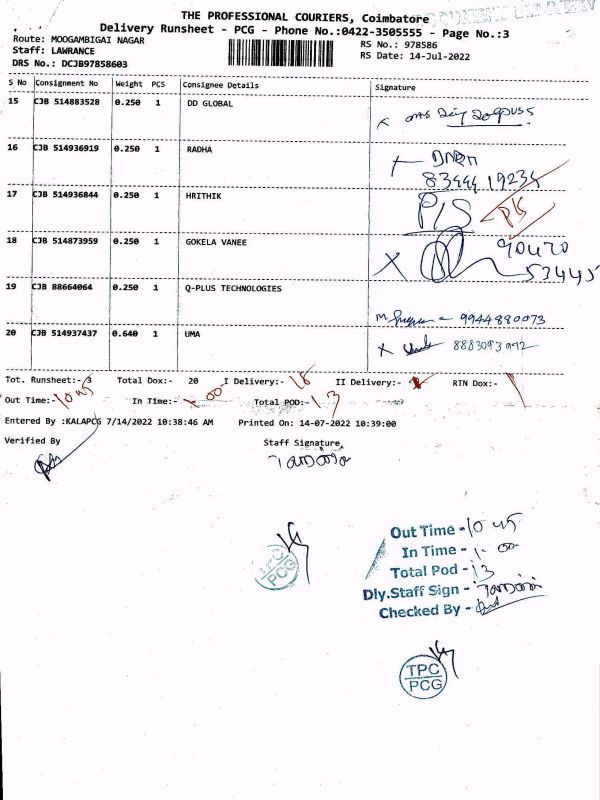 THE PROFESSIONAL COURIERS, Coimbatore
Delivery Runsheet - PCG - Phone No.:0422-3505555 - Page No.:3
Route: MOOGAMBIGAI NAGAR
RS No.: 978586
Staff: LAWRANCE
RS Date: 14-Jul-2022
DRS No.: DCJB97858603
S No Consignment No Weight PCS Consignee Details Signature
15 CJB 514883528 0.250 1 DD GLOBAL
16 CJB 514936919 0.250 1 RADHA
83444 19234
17 CJB 514936844 0.250 1 HRITHIK P/S
18 CJB 514873959 0.250 1 GOKELA VANEE 90470
53445
19 CJB 88664064 0.250 1 Q-PLUS TECHNOLOGIES
9944880073
20 CJB 514937437 0.640 1 UMA
8883093972
Tot. Runsheet:-3 Total Dox:- 20 I Delivery:- 18 II Delivery:- RTN Dox:-
Out Time:-10 45 In Time:- 1 00 Total POD:-13
Entered By :KALAPCG 7/14/2022 10:38:46 AM Printed On: 14-07-2022 10:39:00
Verified By Staff Signature
Out Time -10 45
In Time - 1 00
Total Pod - 13
Dly.Staff Sign -
Checked By -
TPC
PCG
TPC
PCG